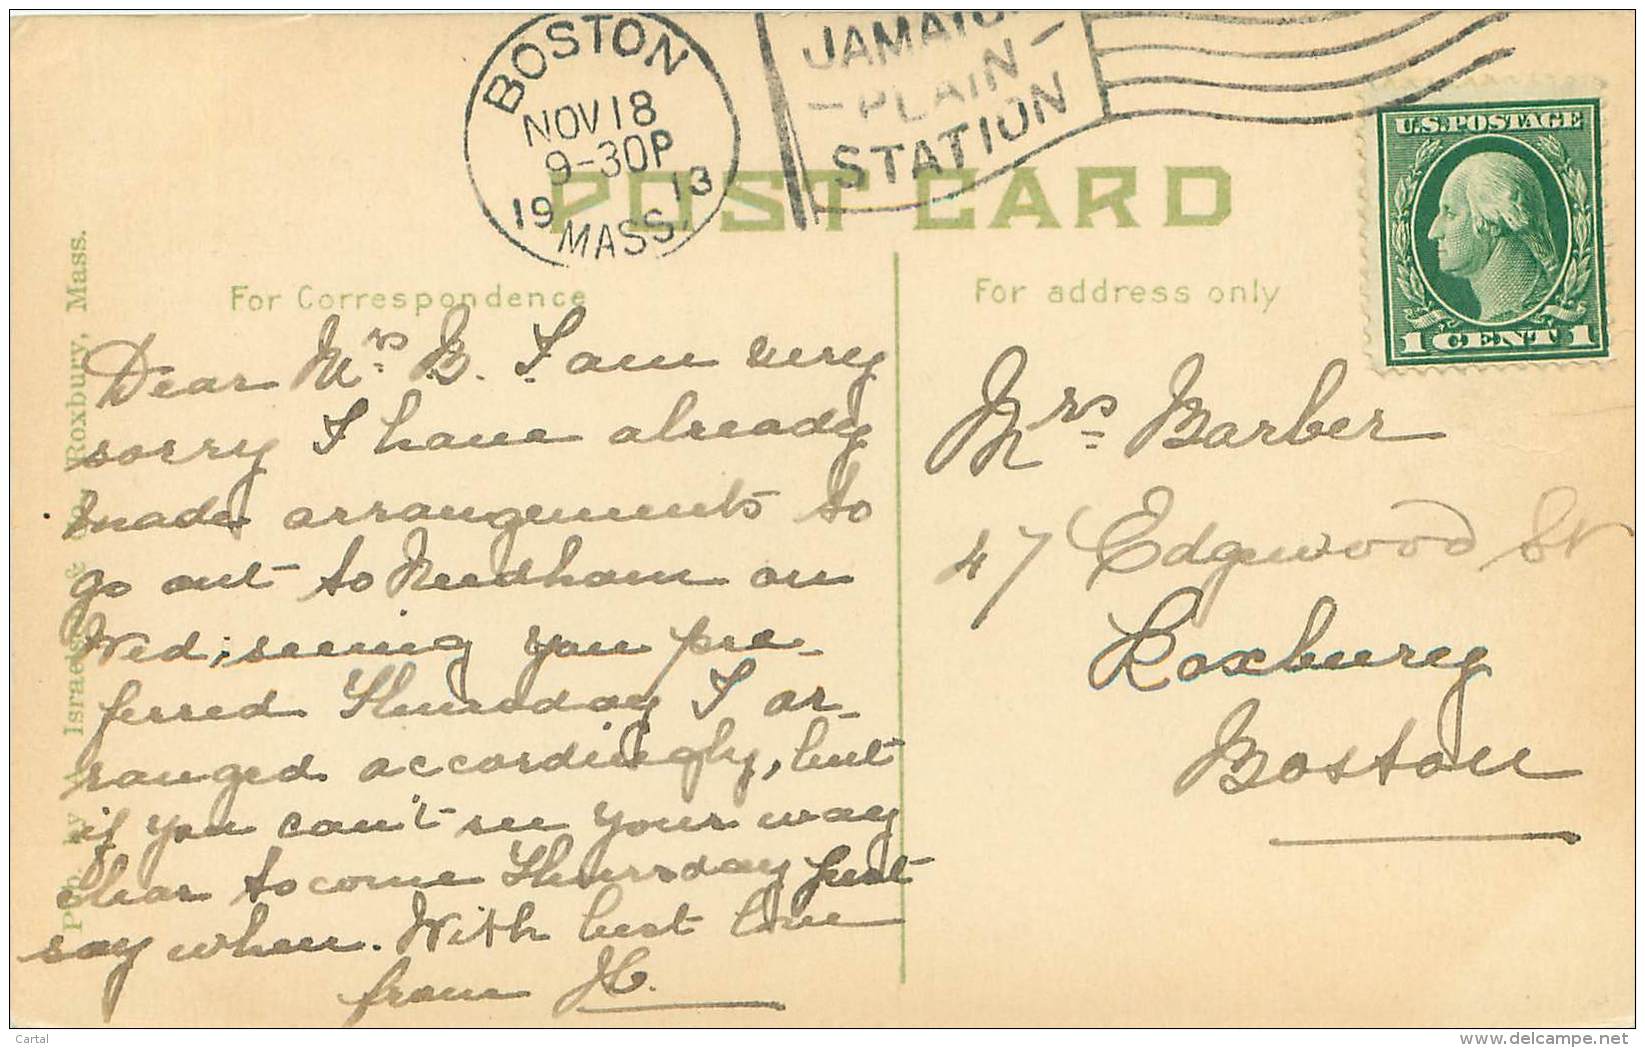 BOSTON
NOV 18
9-30P
19 13
MASS.
JAMAICA
- PLAIN -
STATION
U.S. POSTAGE
1 CENT 1
POST CARD
For Correspondence
For address only
Dear Mrs. B. I am very
sorry I have already
made arrangements to
go out to Needham on
Wed; seeing you pre-
ferred Thursday I ar-
ranged accordingly, but
if you can't see your way
clear to come Thursday just
say when. With best love
from H.
Mrs. Barber
47 Edgewood St
Roxbury
Boston
Pub. by A. Israelson & Co., Roxbury, Mass.
Cartal
www.delcampe.net